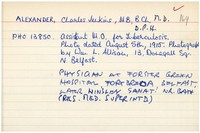 ALEXANDER, Charles Jenkins, M.B, B.Ch, M.D.
D.P.H.
PHO 13850. Assistant M.O. for Tuberculosis.
Photo dated August 5th, 1915. Photograph
by Dav. L. Allison, 13, Donegall Sq.
N. Belfast.
PHYSICIAN AT FORSTER GREEN
HOSPITAL FORTBREDA BELFAST
LATER WINSLEY SANATR. NR. BATH
(RES. MED. SUPERINTD)